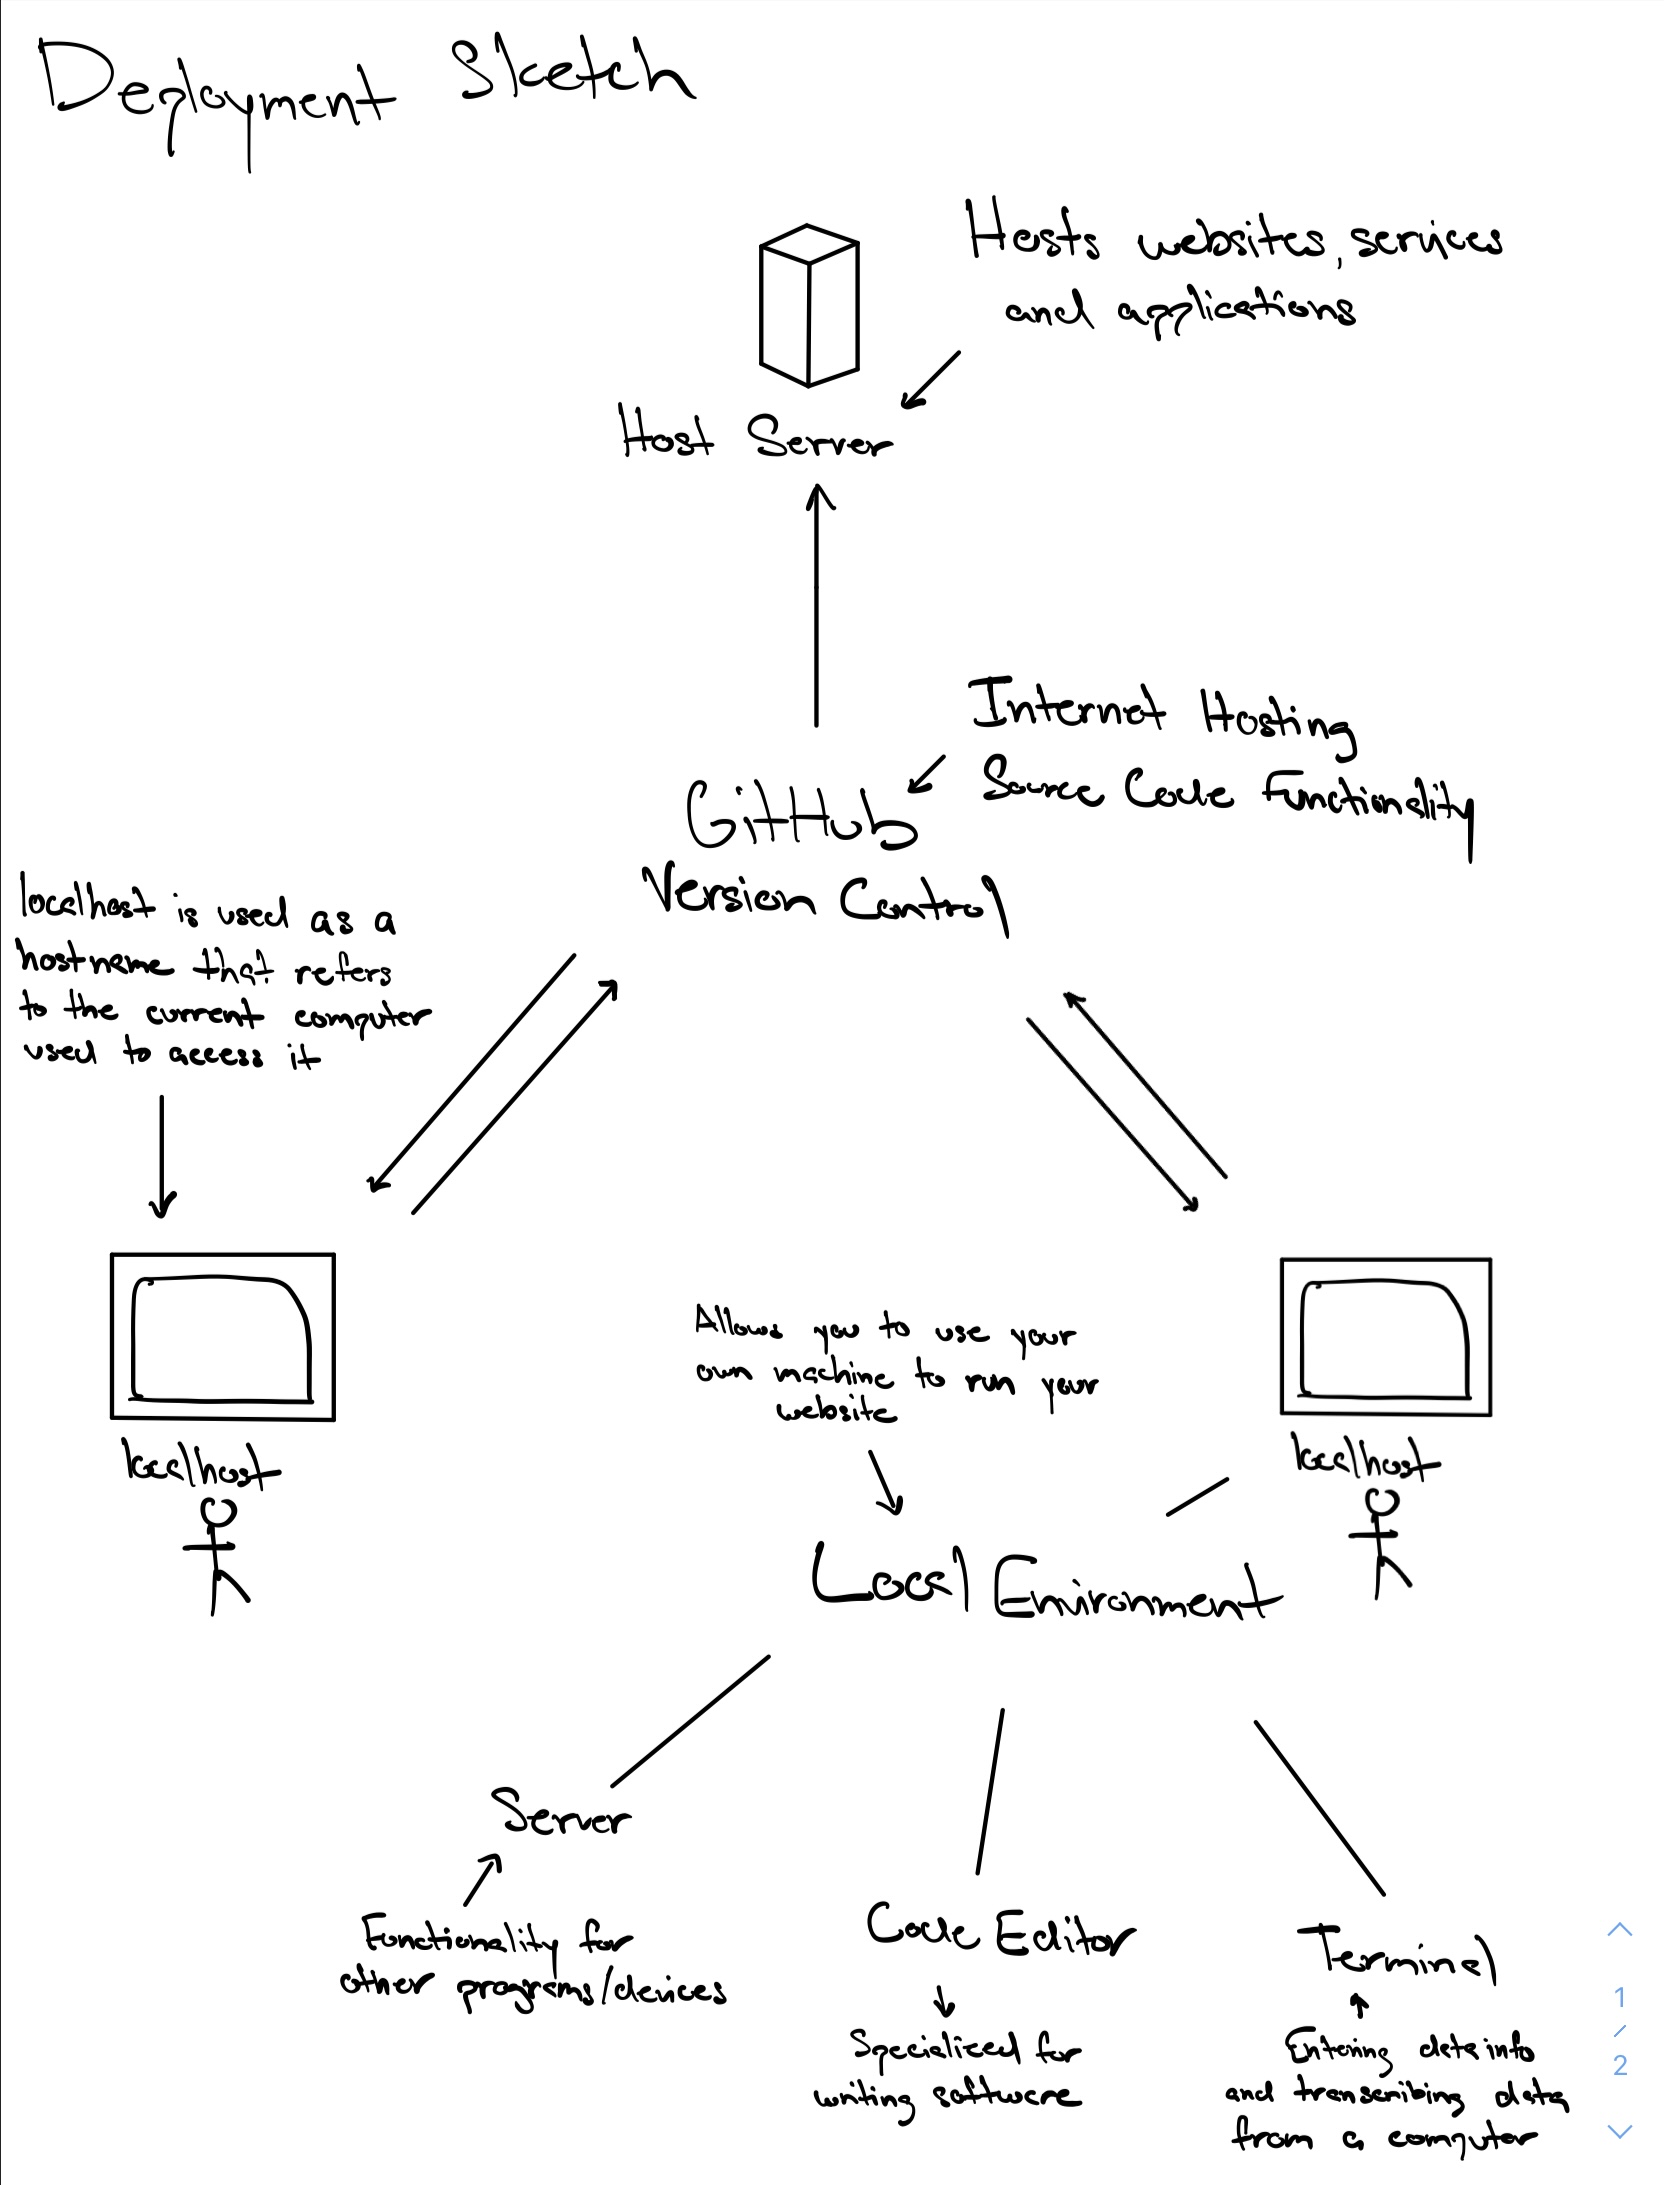 Deployment Sketch
Hosts websites, services
and applications
Host Server
Internet Hosting
Source Code Functionality
GitHub
Version Control
localhost is used as a
hostname that refers
to the current computer
used to access it
Allows you to use your
own machine to run your
website
localhost
localhost
Local Environment
Server
Functionality for
other programs/devices
Code Editor
Specialized for
writing software
Terminal
Entering data info
and transcribing data
from a computer
1
/
2